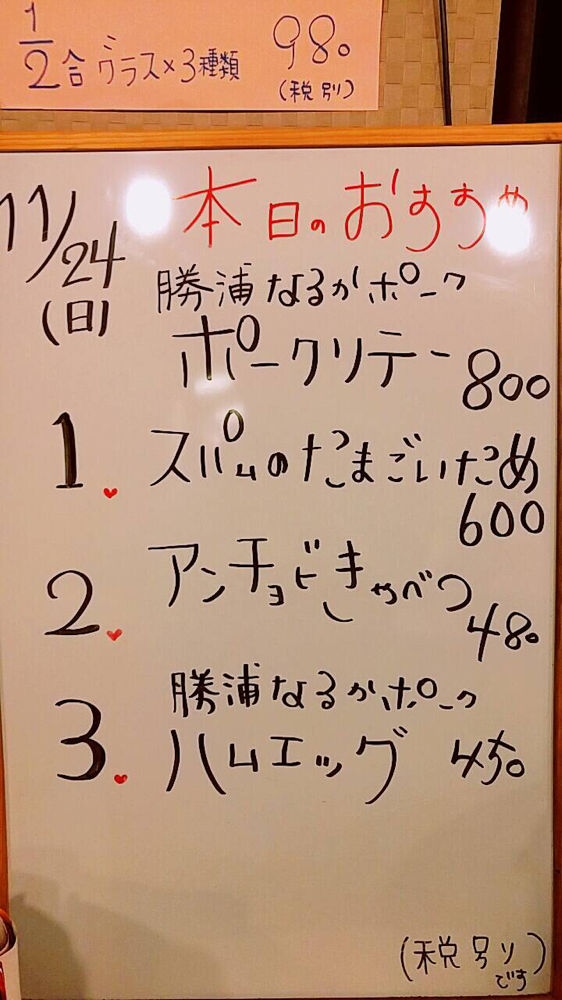 1/2合グラス×3種類 980
(税別)
11/24
(日)
本日のおすすめ
勝浦なるかポーク
ポークソテー 800
1. スパムのたまごいため
600
2. アンチョビきゃべつ
480
3. 勝浦なるかポーク
ハムエッグ 450
(税別りです)